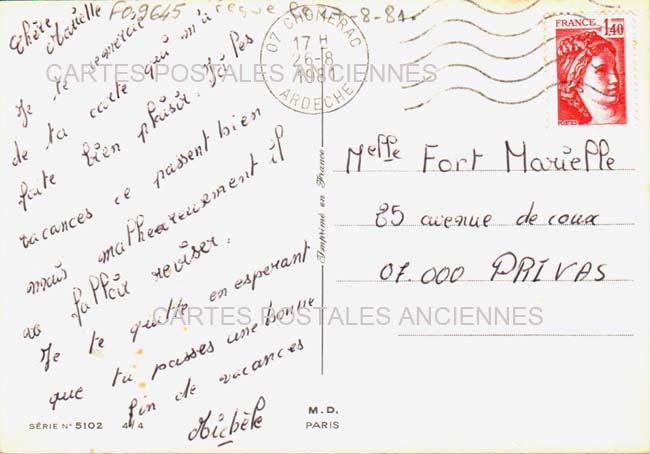 FO.9645 reçue le -8-81
Chère Marielle
Je te remercie
de ta carte qui m'a
faite bien plaisir. Les
vacances ce passent bien
mais malheureusement il
va falloir reviser.
Je te quitte en esperant
que tu passes une bonne
fin de vacances
Michèle
07 CHOMERAC
17 H
26-8
1981
ARDECHE
FRANCE
1,40
POSTES
Melle Fort Marielle
25 avenue de coux
07.000 PRIVAS
Imprimé en France
CARTES POSTALES ANCIENNES
CARTES POSTALES ANCIENNES
SÉRIE N° 5102 4/4
M. D.
PARIS